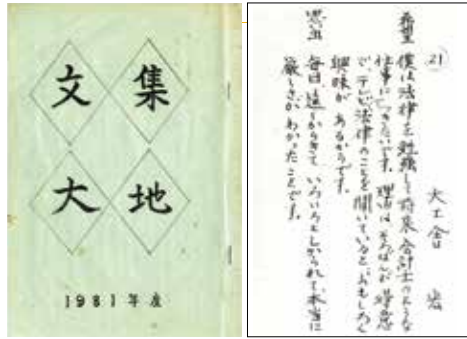 文集
大地
1981年度
21 大工舎 宏
希望 僕は法律を勉強して将来会計士のような
仕事につきたいです。理由はそろばんが得意
で、テレビ法律のことを聞いていると、おもしろく
興味が あるからです。
思出 毎日遠くからきて いろいろとしかられて、本当に
厳しさがわかったことです。